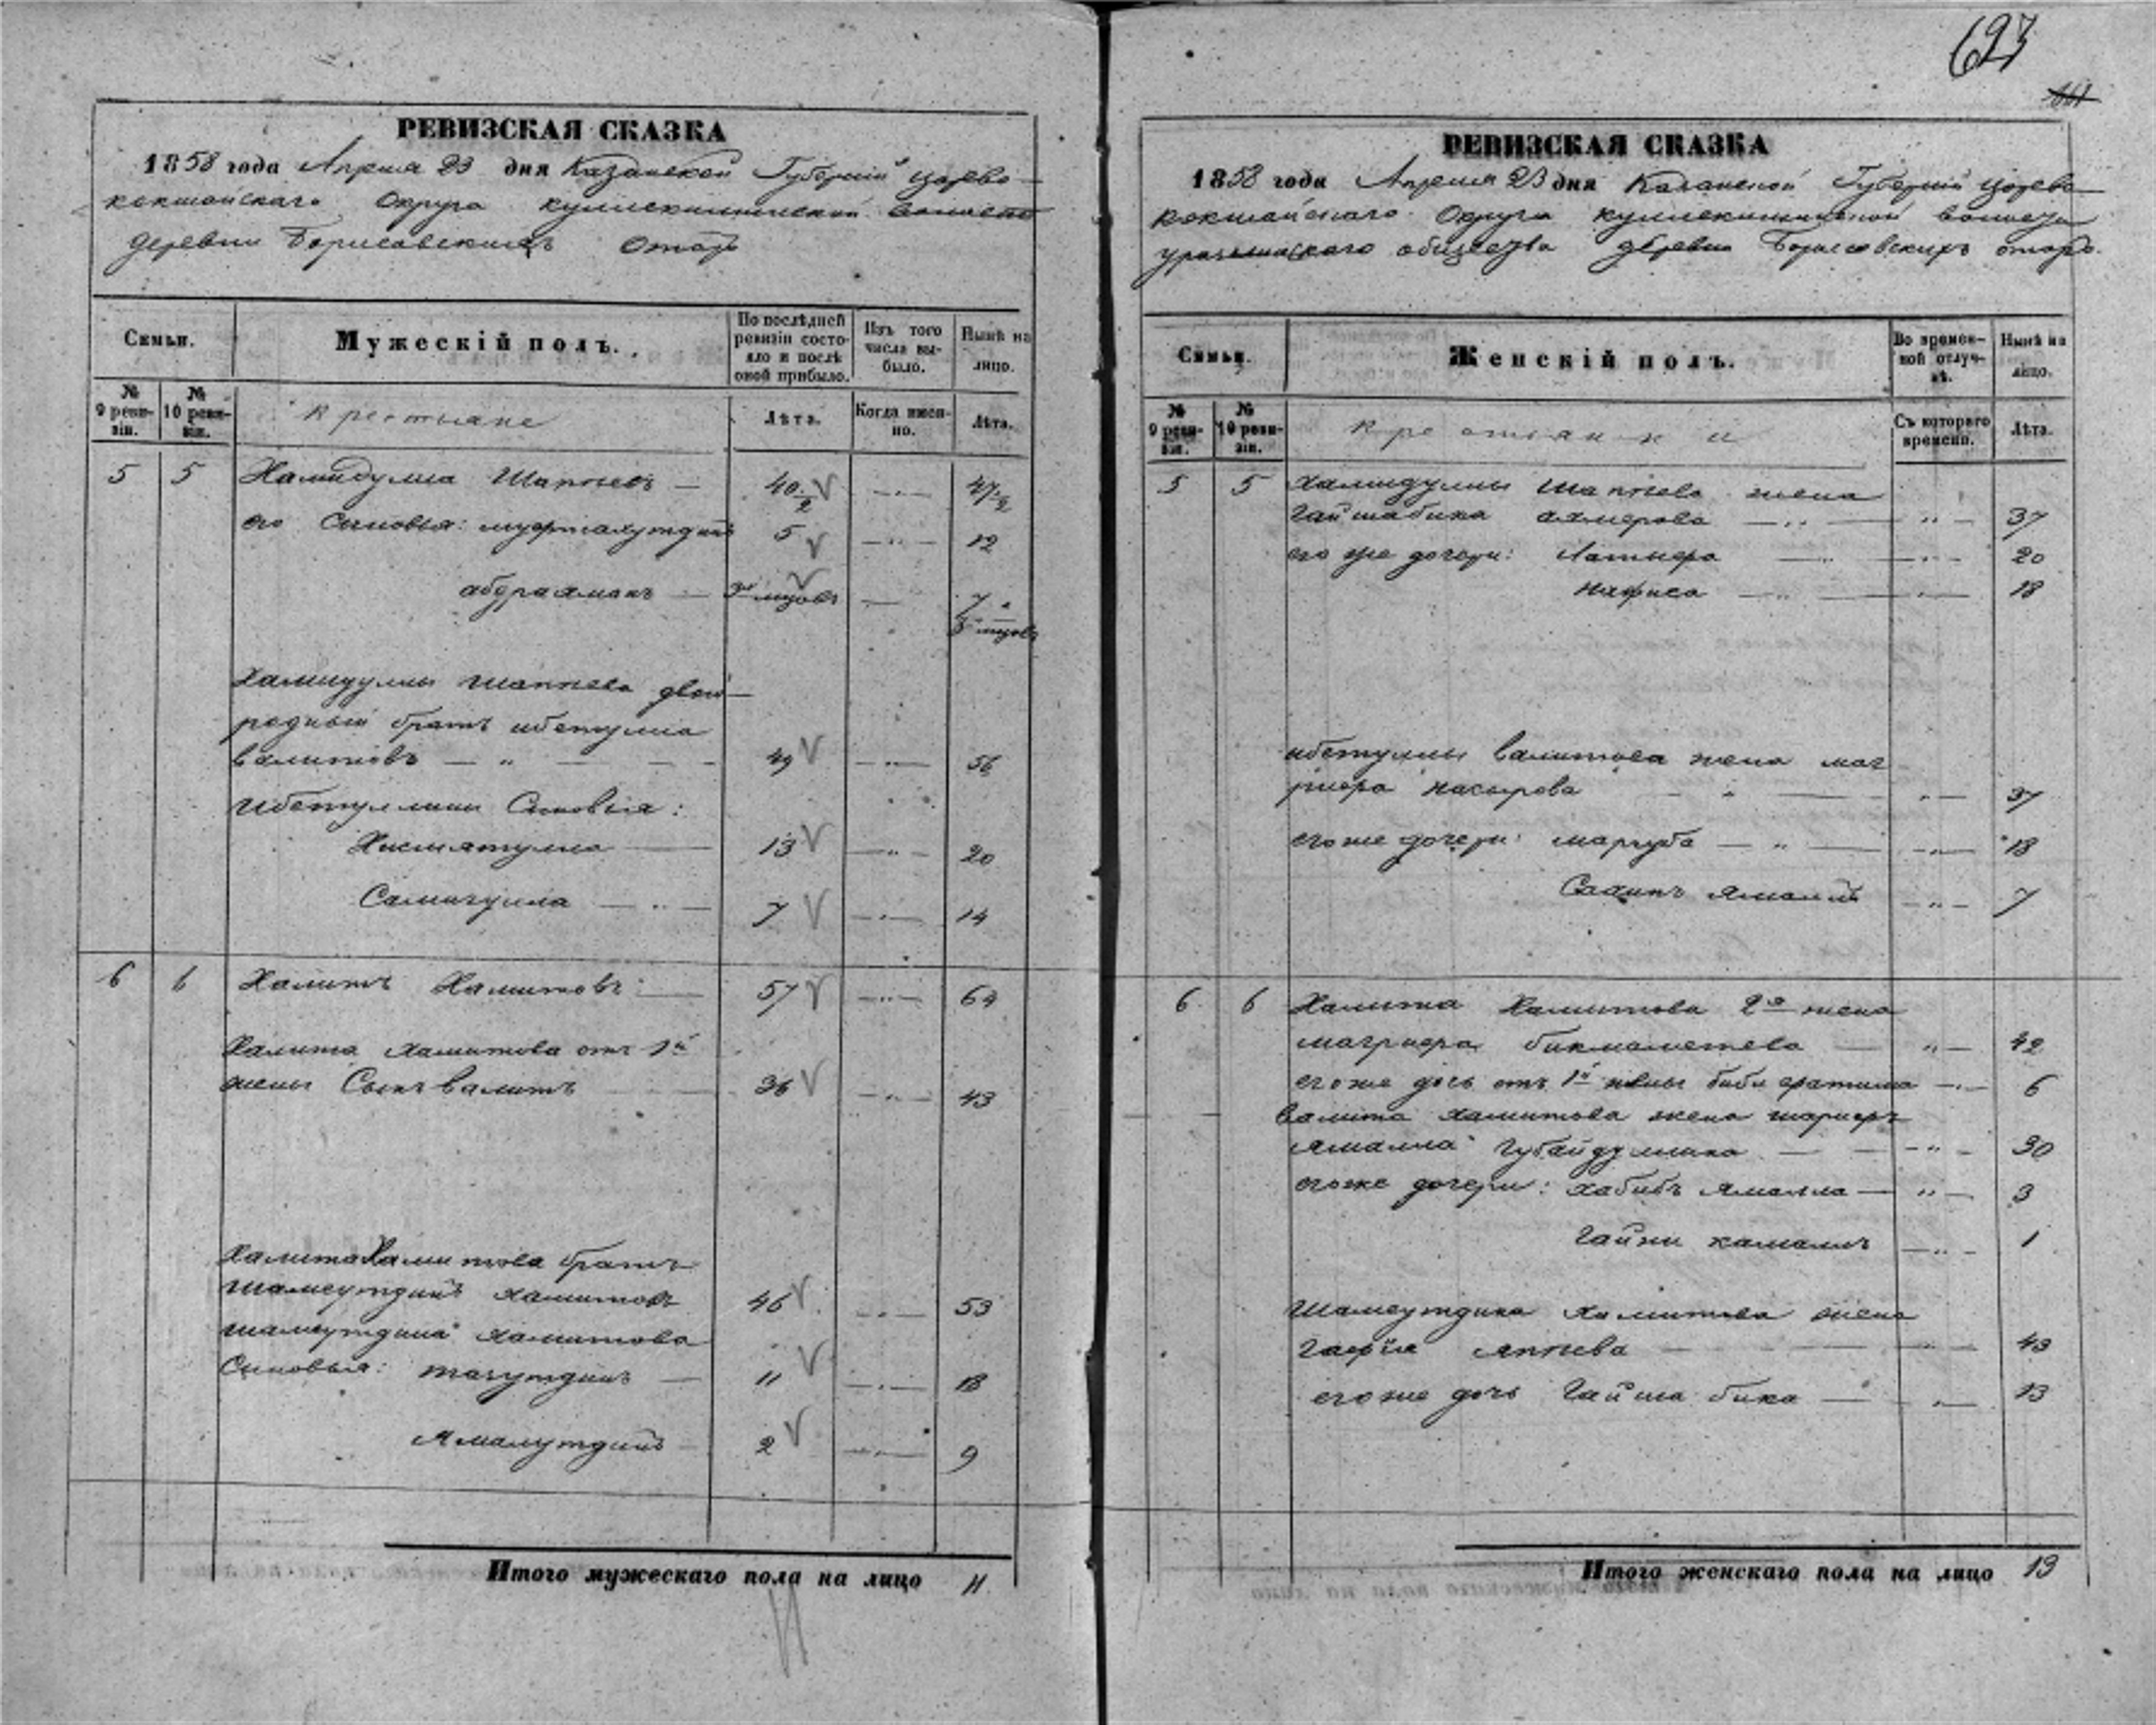 697
РЕВИЗСКАЯ СКАЗКА
1858 года Апреля 23 дня Казанской Губерніи Царево-
кокшайскаго Округа кулле волости
деревни Борисовскихъ Отаръ
Семьи.
Мужескій полъ.
По послѣдней ревизіи состояло и послѣ оной прибыло.
Изъ того числа выбыло.
Нынѣ на лицо.
№ 9 ревизіи.
№ 10 ревизіи.
Крестьяне
Лѣта.
Когда именно.
Лѣта.
5 5 Хамидулла Шаппеевъ — 40½ — 47½
его Сыновья: 5 — 12
абдрахманъ — 3 мцовъ — 7
мцовъ
Хамидуллы Шаппеева двою-
родный братъ ибетулла
валитовъ — 49 — 56
Ибетуллини Сыновья:
Хисмятулла — 13 — 20
Самигулла — 7 — 14
6 6 Халитъ Хамитовъ — 57 — 64
Халита хамитова отъ 1й
жены Сынъ валитъ 36 — 43
Халита Хамитова братъ
шамсутдинъ хамитовъ 46 — 53
шамсутдина хамитова
Сыновья: тазутдинъ — 11 — 18
Ямалутдинъ — 2 — 9
Итого мужескаго пола на лицо 11.
РЕВИЗСКАЯ СКАЗКА
1858 года Апреля 23 дня Казанской Губерніи Царево-
кокшайскаго Округа кулле волости
общества деревни Борисовскихъ отаръ.
Семьи.
Женскій полъ.
Во временной отлучкѣ.
Нынѣ на лицо.
№ 9 ревизіи.
№ 10 ревизіи.
Крестьянки
Съ котораго времени.
Лѣта.
5 5 Хамидуллы Шаппеева жена
Гайшабика — 37
его же дочери: — 20
Нафиса — 18
ибетуллы валитова жена маг
насырова — 37
его же дочери: марзуба — 18
Ямалъ — 7
6 6 Халита Хамитова 2я жена
бикмаметева — 42
его же дочь отъ 1й жены биби фатима — 6
валита хамитова жена
ямалла Губайдуллина — 30
его же дочери: хабибъ ямалла — 3
Гайни камалъ — 1
Шамсутдина Хамитова жена
аппева — 43
его же дочь Гайша бика — 13
Итого женскаго пола на лицо 13